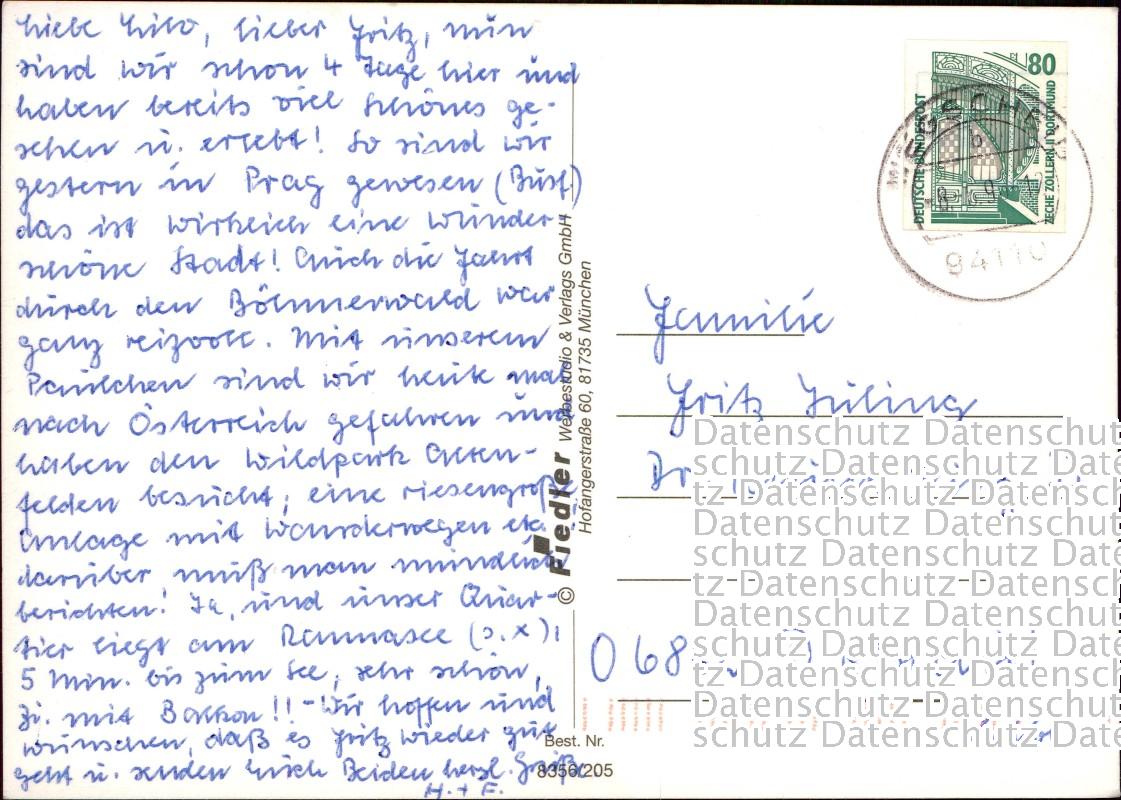 Liebe Hilo, lieber Fritz, nun
sind wir schon 4 Tage hier und
haben bereits viel Schönes ge-
sehen u. erlebt! So sind wir
gestern in Prag gewesen (Busf.)
das ist wirklich eine wunder-
schöne Stadt! Auch die Fahrt
durch den Böhmerwald war
ganz reizvoll. Mit unserem
Paulchen sind wir heute mal
nach Österreich gefahren und
haben den Wildpark Alten-
felden besucht; eine riesengroße
Anlage mit Wanderwegen etc.
darüber muß man mündlich
berichten! Ja, und unser Quar-
tier liegt am Rannasee (s. x),
5 Min. bis zum See, sehr schön,
Zi. mit Balkon!! - Wir hoffen und
wünschen, daß es Fritz wieder gut
geht u. senden Euch Beiden herzl. Grüße
H. + F.
© Fiedler Werbestudio & Verlags GmbH
Hofangerstraße 60, 81735 München
Best. Nr.
8356/205
80
DEUTSCHE BUNDESPOST
ZECHE ZOLLERN II DORTMUND
94110
Familie
Fritz Jüling
Dr.
O 68
Datenschutz Datenschut
schutz Datenschutz Date
tz Datenschutz Datensch
Datenschutz Datenschut
schutz Datenschutz Date
tz Datenschutz Datensch
Datenschutz Datenschut
schutz Datenschutz Date
tz Datenschutz Datensch
Datenschutz Datenschut
schutz Datenschutz Date